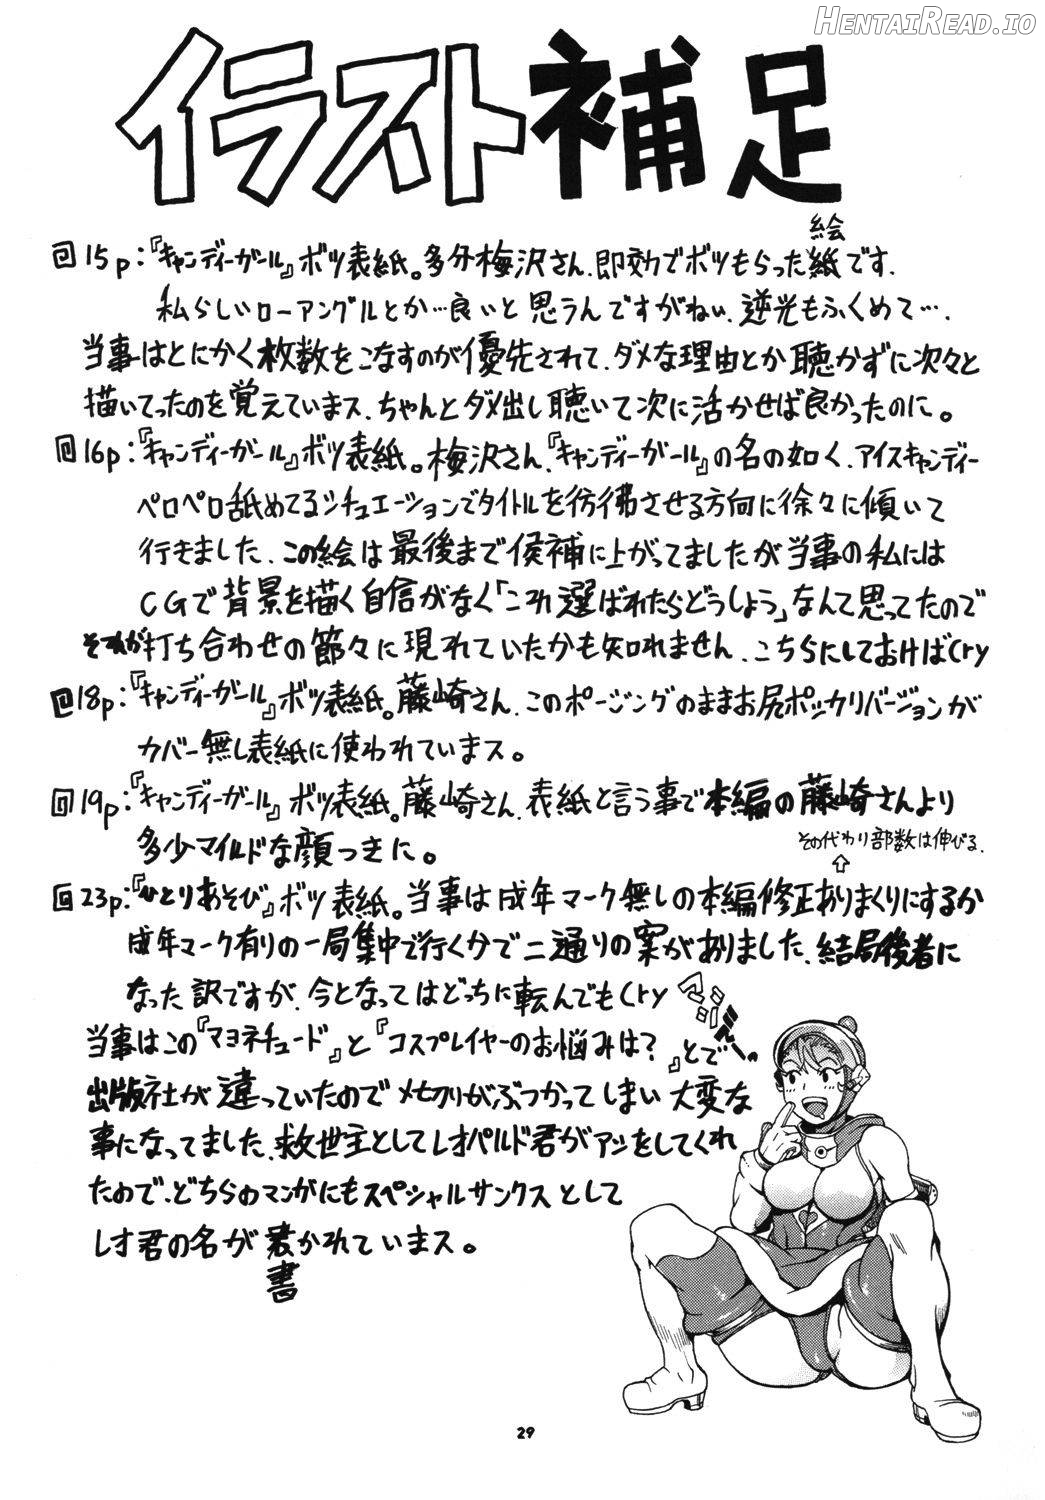 HentaiRead.io
イラスト補足
回15p:『キャンディーガール』ボツ表紙。多分梅沢さん、即効でボツもらった紙です。
絵
私らしいローアングルとか…良いと思うんですがねぃ、逆光もふくめて…。
当事はとにかく枚数をこなすのが優先されて、ダメな理由とか聴かずに次々と
描いてったのを覚えていまス、ちゃんとダメ出し聴いて次に活かせば良かったのに。
回16p:『キャンディーガール』ボツ表紙。梅沢さん、『キャンディーガール』の名の如く、アイスキャンディー
ペロペロ舐めてるシチュエーションでタイトルを彷彿させる方向に徐々に傾いて
行きました、この絵は最後まで候補に上がってましたが当事の私には
CGで背景を描く自信がなく「これ選ばれたらどうしよう」なんて思ってたので
それが打ち合わせの節々に現れていたかも知れません、こちらにしておけばcry
回18p:『キャンディーガール』ボツ表紙。藤崎さん、このポージングのままお尻ポッカリバージョンが
カバー無し表紙に使われていまス。
回19p:『キャンディーガール』ボツ表紙。藤崎さん、表紙と言う事で本編の藤崎さんより
多少マイルドな顔つきに。
その代わり部数は伸びる。
⇧
回23p:『ひとりあそび』ボツ表紙。当事は成年マーク無しの本編修正ありまくりにするか
成年マーク有りの一局集中で行くかで二通りの案がありました、結局後者に
なった訳ですが、今となってはどっちに転んでもcry
マジでーっ
当事はこの『マヨネチュード』と『コスプレイヤーのお悩みは?』とで
出版社が違っていたのでメ切りがぶつかってしまい大変な
事になってました、救世主としてレオパルド君がアシをしてくれ
たので、どちらのマンガにもスペシャルサンクスとして
レオ君の名が書かれていまス。
書
29